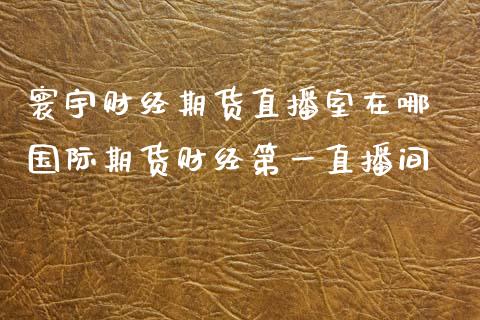 寰宇财经期货直播室在哪
国际期货财经第一直播间